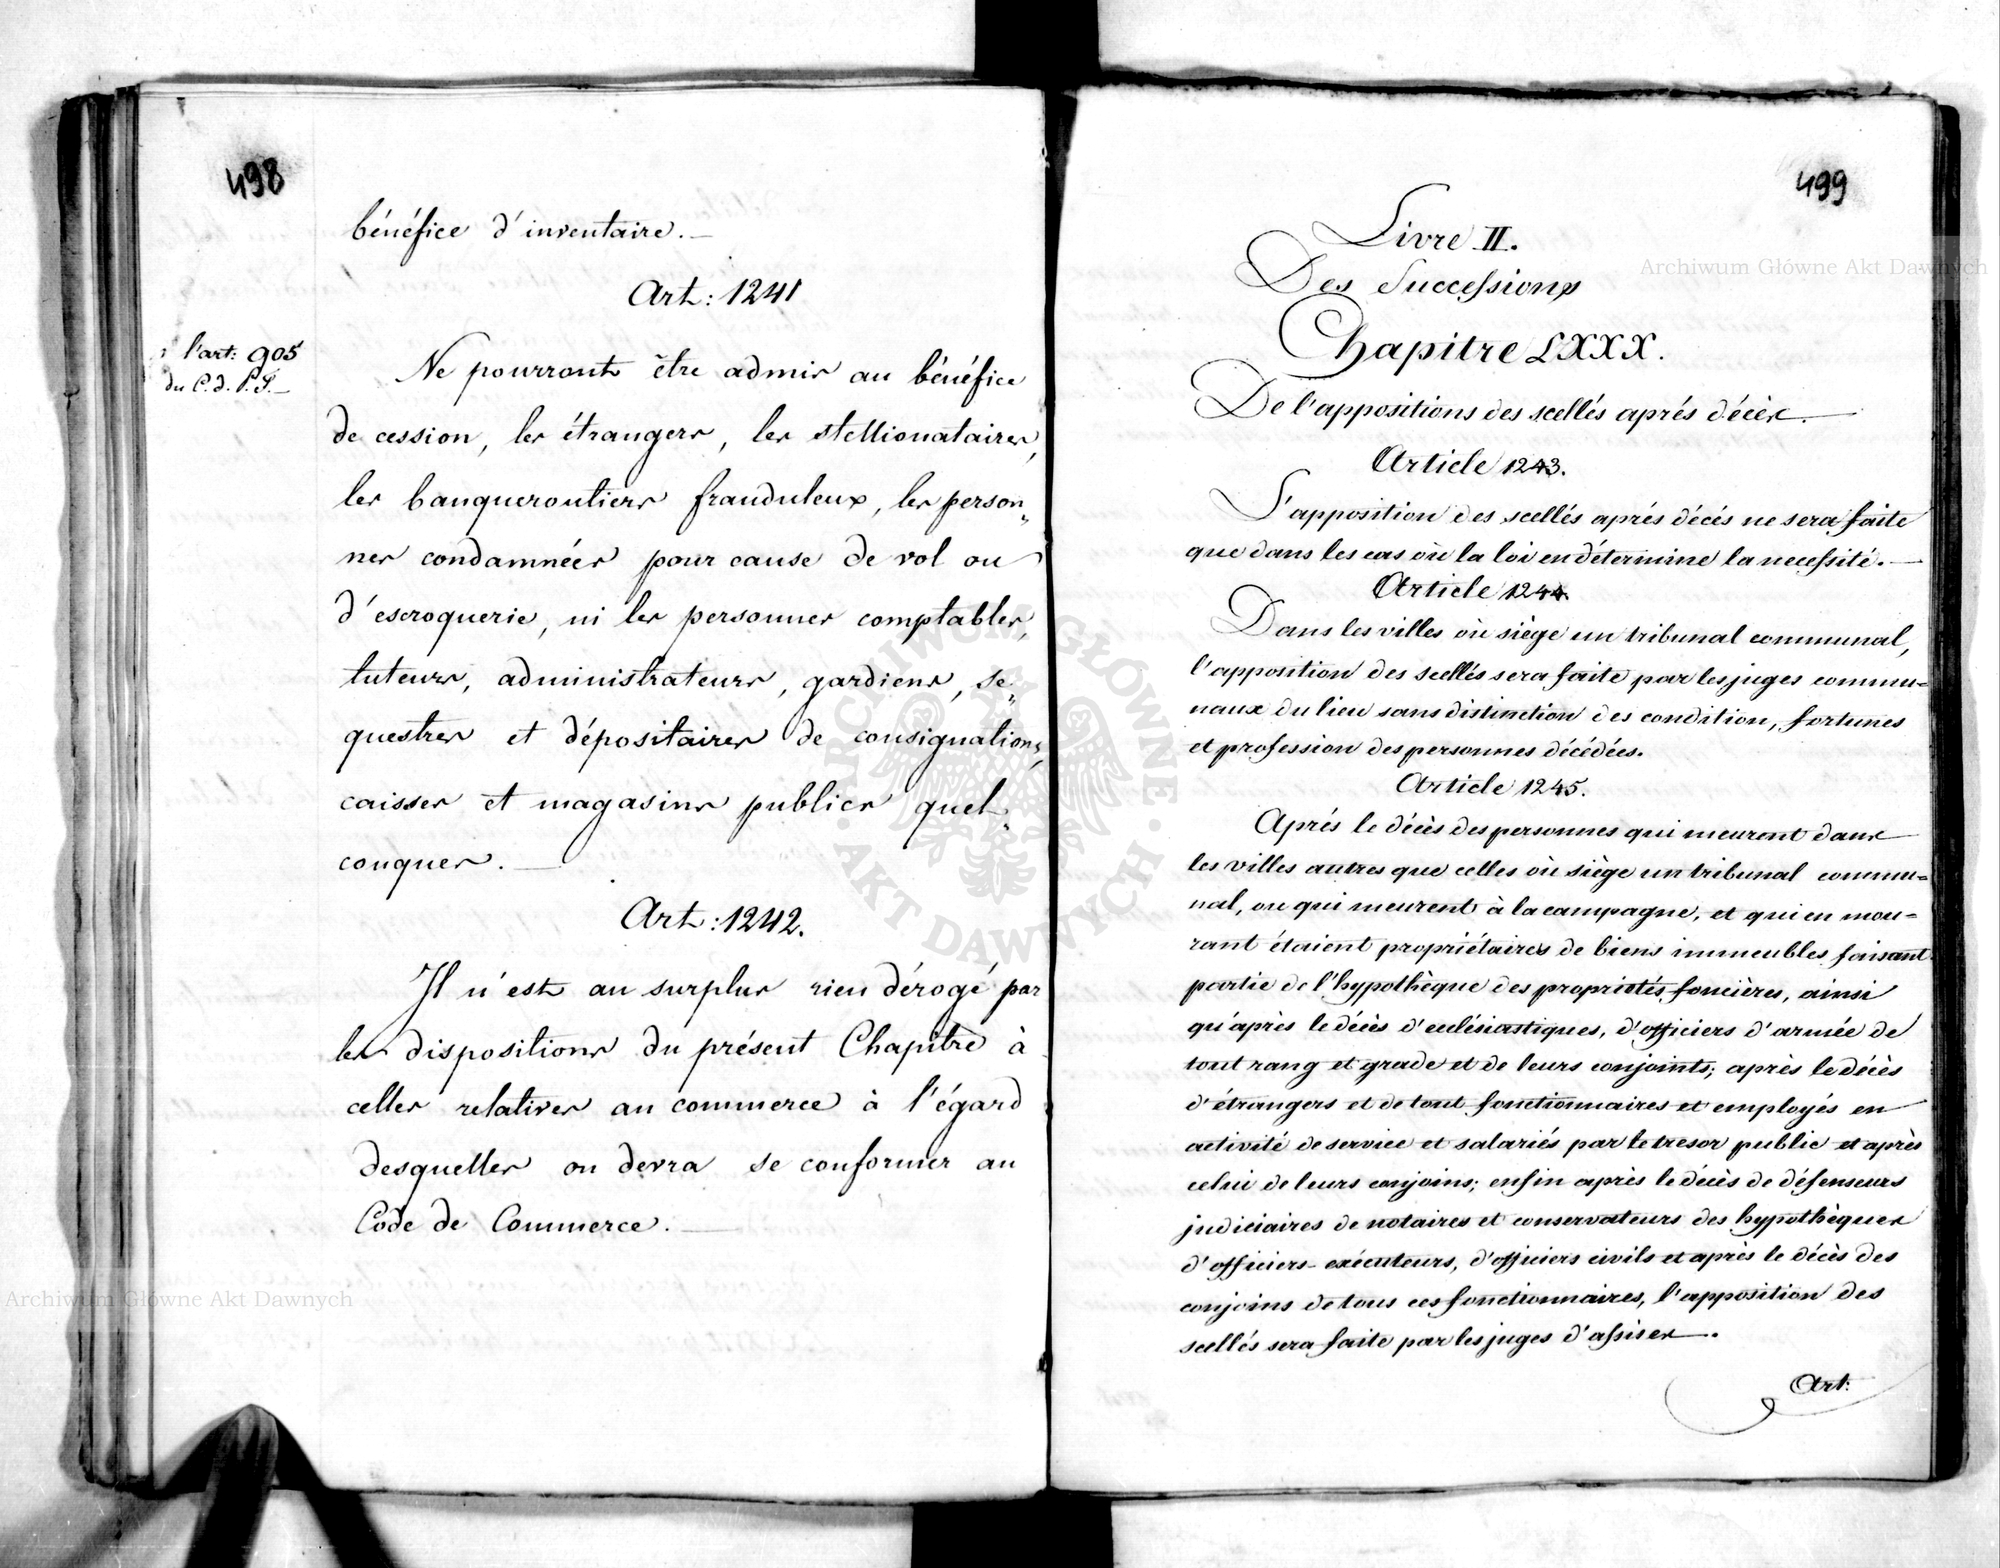 498
bénéfice d'inventaire. —
Art: 1241
l'art: 905
du C. d. P. F. —
Ne pourront être admis au bénéfice
de cession, les étrangers, les stellionataires,
les banqueroutiers frauduleux, les person„
nes condamnées pour cause de vol ou
d'escroquerie, ni les personnes comptables,
tuteurs, administrateurs, gardiens, sé„
questres et dépositaires de consignations,
caisses et magasins publics quel„
conques. —
Art: 1242.
Il n'est au surplus rien dérogé par
les dispositions du présent Chapitre à
celles relatives au commerce à l'égard
desquelles on devra se conformer au
Code de Commerce. —
499
Livre II.
Des Successions
Chapitre LXXX.
De l'appositions des scellés aprés décès. —
Article 1243.
L'apposition des scellés aprés décés ne sera faite
que dans les cas où la loi en détermine la necessité. —
Article 1244.
Dans les villes où siège un tribunal communal,
l'apposition des scellés sera faite par les juges commu=
naux du lieu sans distinction des condition, fortunes
et profession des personnes décédées.
Article 1245.
Aprés le décès des personnes qui meurent dans
les villes autres que celles où siège un tribunal commu=
nal, ou qui meurent à la campagne, et qui en mou=
rant étaient propriétaires de biens immeubles faisant
partie de l'hypothèque des propriétés foncières, ainsi
qu'après le décès d'ecclésiastiques, d'officiers d'armée de
tout rang et grade et de leurs conjoints; après le décès
d'étrangers et de tout fonctionnaires et employés en
activité de service et salariés par le tresor public et après
celui de leurs conjoins; enfin après le décès de défenseurs
judiciaires de notaires et conservateurs des hypothèques
d'officiers-exécuteurs, d'officiers civils et après le décès des
conjoins de tous ces fonctionnaires, l'apposition des
scellés sera faite par les juges d'assises.
Art:
Archiwum Główne Akt Dawnych
Archiwum Główne Akt Dawnych
ARCHIWUM GŁÓWNE · AKT DAWNYCH ·